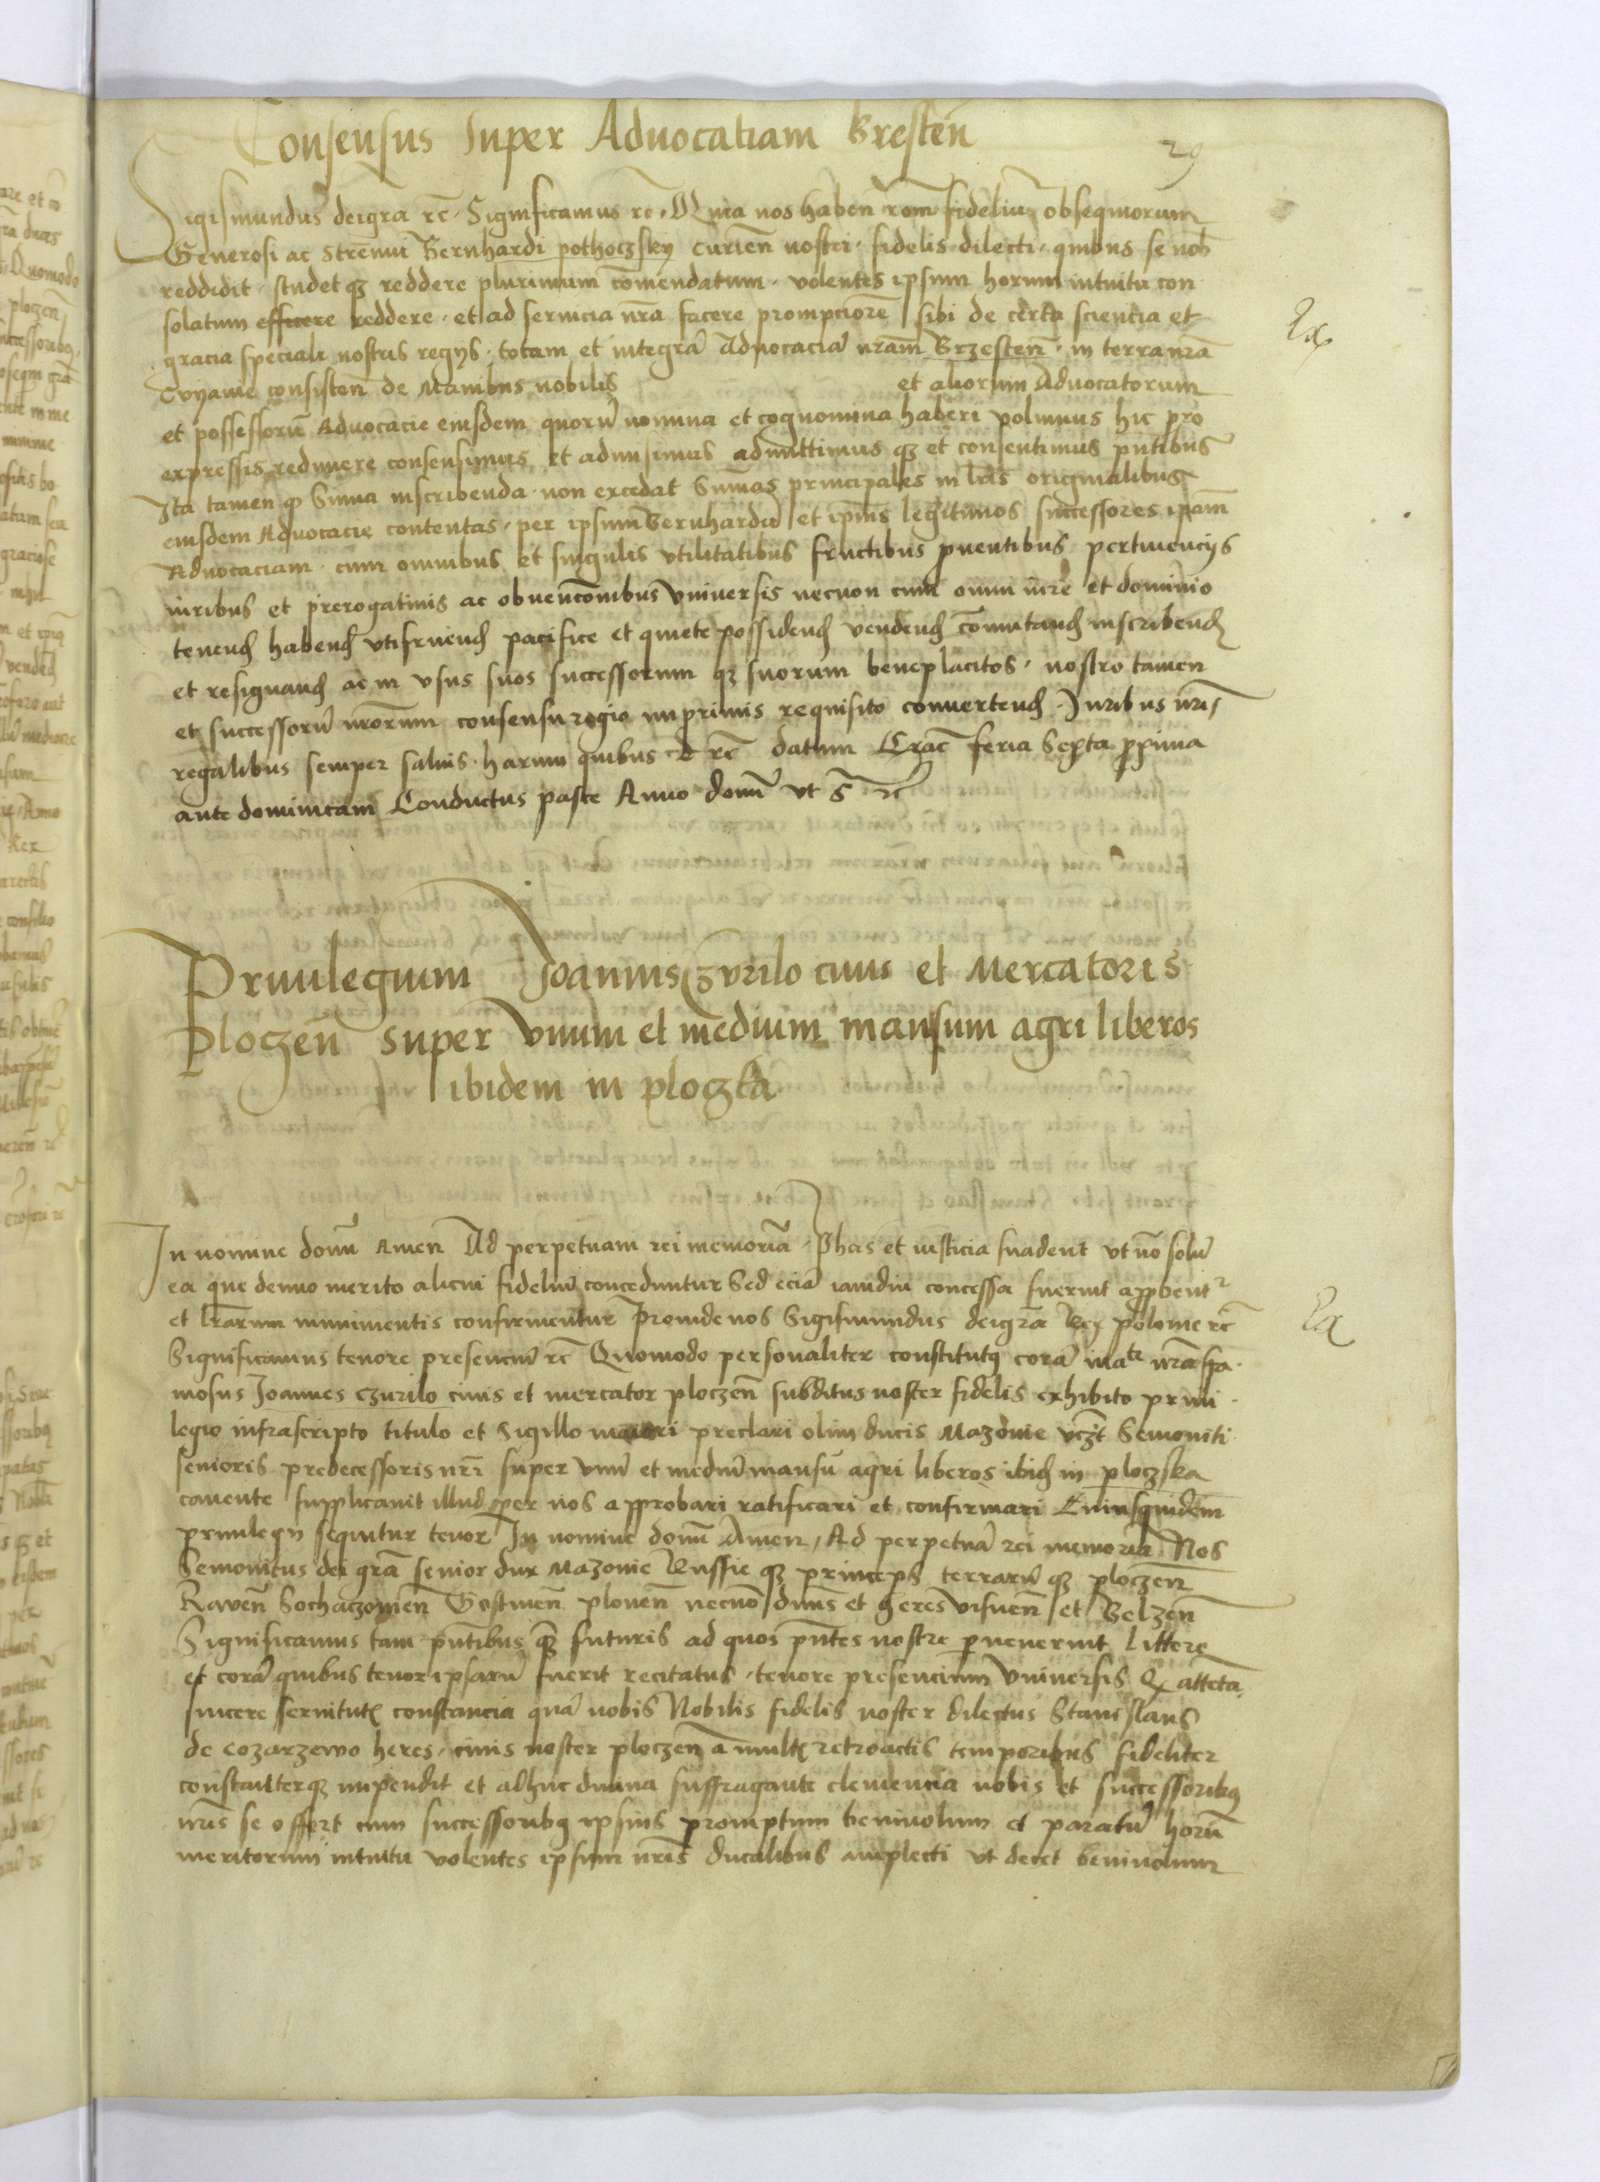 Consensus super Advocatiam Bresten̄
29
Sigismundus dei gra rc̄. Significamus rc̄. Quia nos haben̄ rōm fideliū obsequiorum
Generosi ac strenui Bernhardi pothoczsky curien̄ nostri. fidelis dilecti. quibus se nob̄
reddidit. studet qȝ reddere plurimum cōmendatum. volentes ipsum horum intuitu con
solatum efficere reddere. et ad servicia nrā facere prompciorē sibi de certa sciencia et
gracia speciali nostris regijs. totam et integrā Advocaciā nrām Brzesten̄. in terra nrā
Cuyavie consisten̄ de Manibus nobilis et aliorum Advocatorum
et possessorū Advocacie eiusdem quorū nomina et cognomina haberi volumus hic pro
expressis redimere consensimus et admisimus admittimus qȝ et consentimus pn̄tibus
Ita tamen qȝ Suma inscribenda. non excedat Sumas principales in lrīs originalibus
eiusdem Advocacie contentas. per ipsum Bernhardū et ipius legitimos successores ipām
Advocaciam. cum omnibus et singulis utilitatibus fructibus pventibus pertinencijs
iuribus et prerogativis ac obvencōnibus Universis necnon cum omni iure et dominio
tenend habend utifruend pacifice et quiete possidend vendend cōmutand inscribend
et resignand ac in usus suos successorum qȝ suorum beneplacitos. nostro tamen
et successorū nrōrum consensu regio imprimis requisito convertend. Juribus nrīs
regalibus semper salvis. harum quibus rc̄ datum Crac̄ feria Sexta pxima
ante dominicam Conductus pasce Anno domī ut s̄ rc̄
Privilegium Joannis Czvrilo civis et Mercatoris
Ploczen̄ super Unum et medium mansum agri liberos
ibidem in ploczka
In nomine domī Amen Ad perpetuam rei memoriā. Phas et iusticia suadent ut nō solū
ea que denuo merito alicui fideliū conceduntur Sed eciā iamdiu concessa fuerint appbent͛
et lrārum munimentis confirmentur Proinde nos Sigismundus dei grā Rex polonie rc̄
Significamus tenore presenciū rc̄ Quomodo personaliter constitutȝ corā ma̅te nrā fa
mosus Joannes Czurilo civis et mercator ploczen̄ subditus noster fidelis exhibito privi
legio infrascripto titulo et sigillo maiori preclari olim ducis Mazovie vczt Semoviti
senioris predecessoris nrī super unū et mediū mansū agri liberos ibid in ploczska
cavente supplicavit illud per nos approbari ratificari et confirmari Cuiusquidem
privilegij sequitur tenor In nomine domī Amen, Ad perpetuā rei memoriā. Nos
Semovitus dei grā senior dux Mazovie Russie qȝ princeps terrarū qȝ ploczen̄
Raven̄ Sochaczovien̄ Gostinen̄ ploven̄ necnō dn̄us et heres visnen̄ et Belzen̄
Significamus tam pn̄tibus qȝ futuris ad quos pn̄tes nostre pvenerint littere
et corā quibus tenor ipsarū fuerit recitatus. tenore presencium Universis Qx attēta
sincere servitutꝭ constancia quā nobis Nobilis fidelis noster dilectus Stanislaus
de cozarzewo heres. civis noster ploczen̄ a multꝭ retroactis temporibus fideliter
constanterqȝ impendit et adhuc divina suffragante clemencia nobis et successoribȝ
nrīs se offert cum successoribȝ ipsius promptum benivolum et paratū horū
meritorum intuitu volentes ipsum nrīs ducalibus amplecti ut decet benivolum